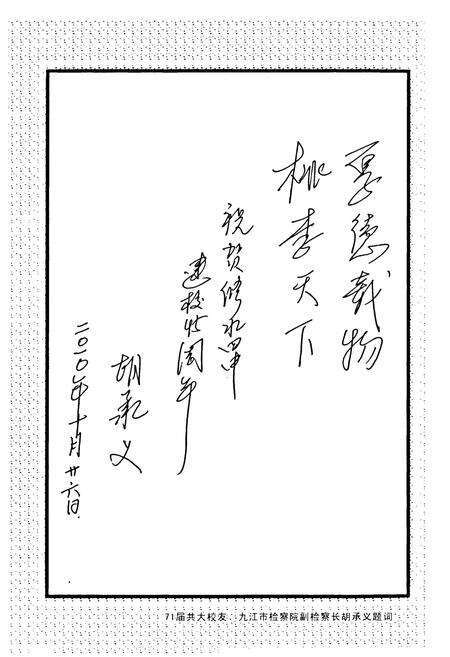 厚德载物
桃李天下
祝贺修水四中
建校周年
胡承义
二〇一〇年十月廿六日
71届共大校友、九江市检察院副检察长胡承义题词